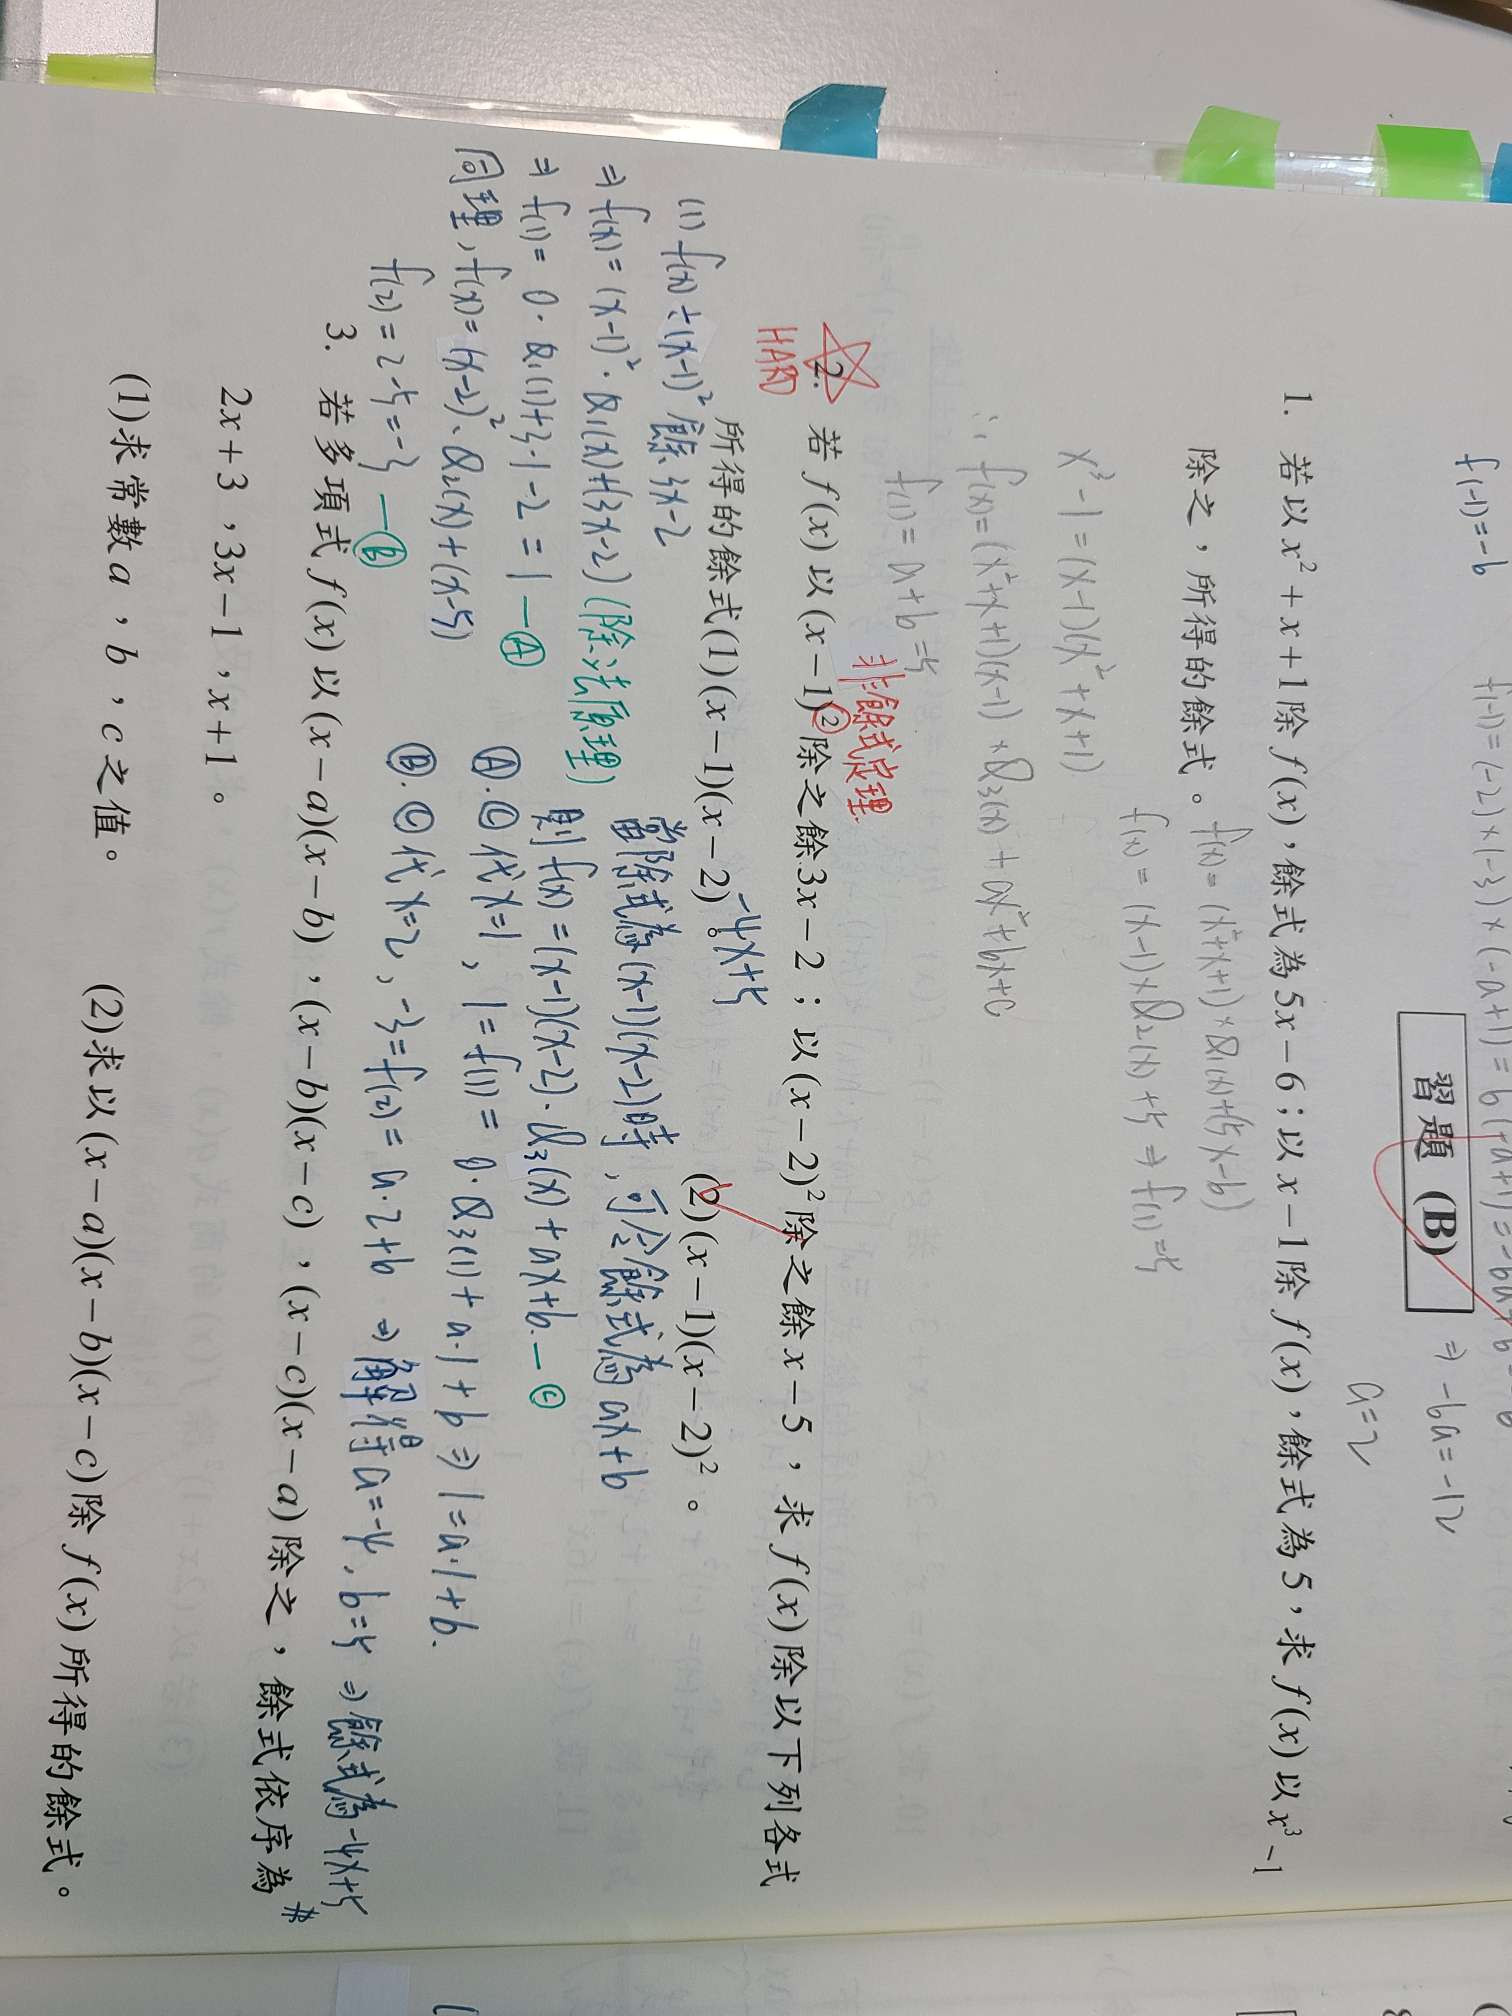 f(-1)=-6
f(-1)=(-2)×(-3)×(-a+1)=6(-a+1)=-6a+6
⇒ -6a=-12
a=2
習題 (B)
1. 若以 x²+x+1 除 f(x)，餘式為 5x-6；以 x-1 除 f(x)，餘式為 5，求 f(x) 以 x³-1
除之，所得的餘式。
f(x)=(x²+x+1)×Q₁(x)+(5x-6)
f(x)=(x-1)×Q₂(x)+5 ⇒ f(1)=5
x³-1=(x-1)(x²+x+1)
∴ f(x)=(x²+x+1)(x-1)×Q₃(x)+ax²+bx+c
f(1)=a+b=5
非餘式定理.
2. 若 f(x) 以 (x-1)² 除之餘 3x-2；以 (x-2)² 除之餘 x-5，求 f(x) 除以下列各式
HARD
所得的餘式(1)(x-1)(x-2)。 (2)(x-1)(x-2)²。
-4x+5
(1) f(x)÷(x-1)² 餘 3x-2
⇒ f(x)=(x-1)²·Q₁(x)+(3x-2) (除法原理)
⇒ f(1)=0·Q₁(1)+3·1-2=1 —Ⓐ
同理, f(x)=(x-2)²·Q₂(x)+(x-5)
f(2)=2-5=-3 —Ⓑ
當除式為(x-1)(x-2)時, 可令餘式為 ax+b
則 f(x)=(x-1)(x-2)·Q₃(x)+ax+b.—Ⓒ
Ⓐ.Ⓒ代x=1, 1=f(1)=0·Q₃(1)+a·1+b ⇒ 1=a·1+b.
Ⓑ.Ⓒ代x=2, -3=f(2)=a·2+b ⇒ 解得 a=-4, b=5 ⇒ 餘式為 -4x+5 #
3. 若多項式 f(x) 以 (x-a)(x-b)，(x-b)(x-c)，(x-c)(x-a) 除之，餘式依序為
2x+3，3x-1，x+1。
(1)求常數 a，b，c 之值。 (2)求以 (x-a)(x-b)(x-c) 除 f(x) 所得的餘式。